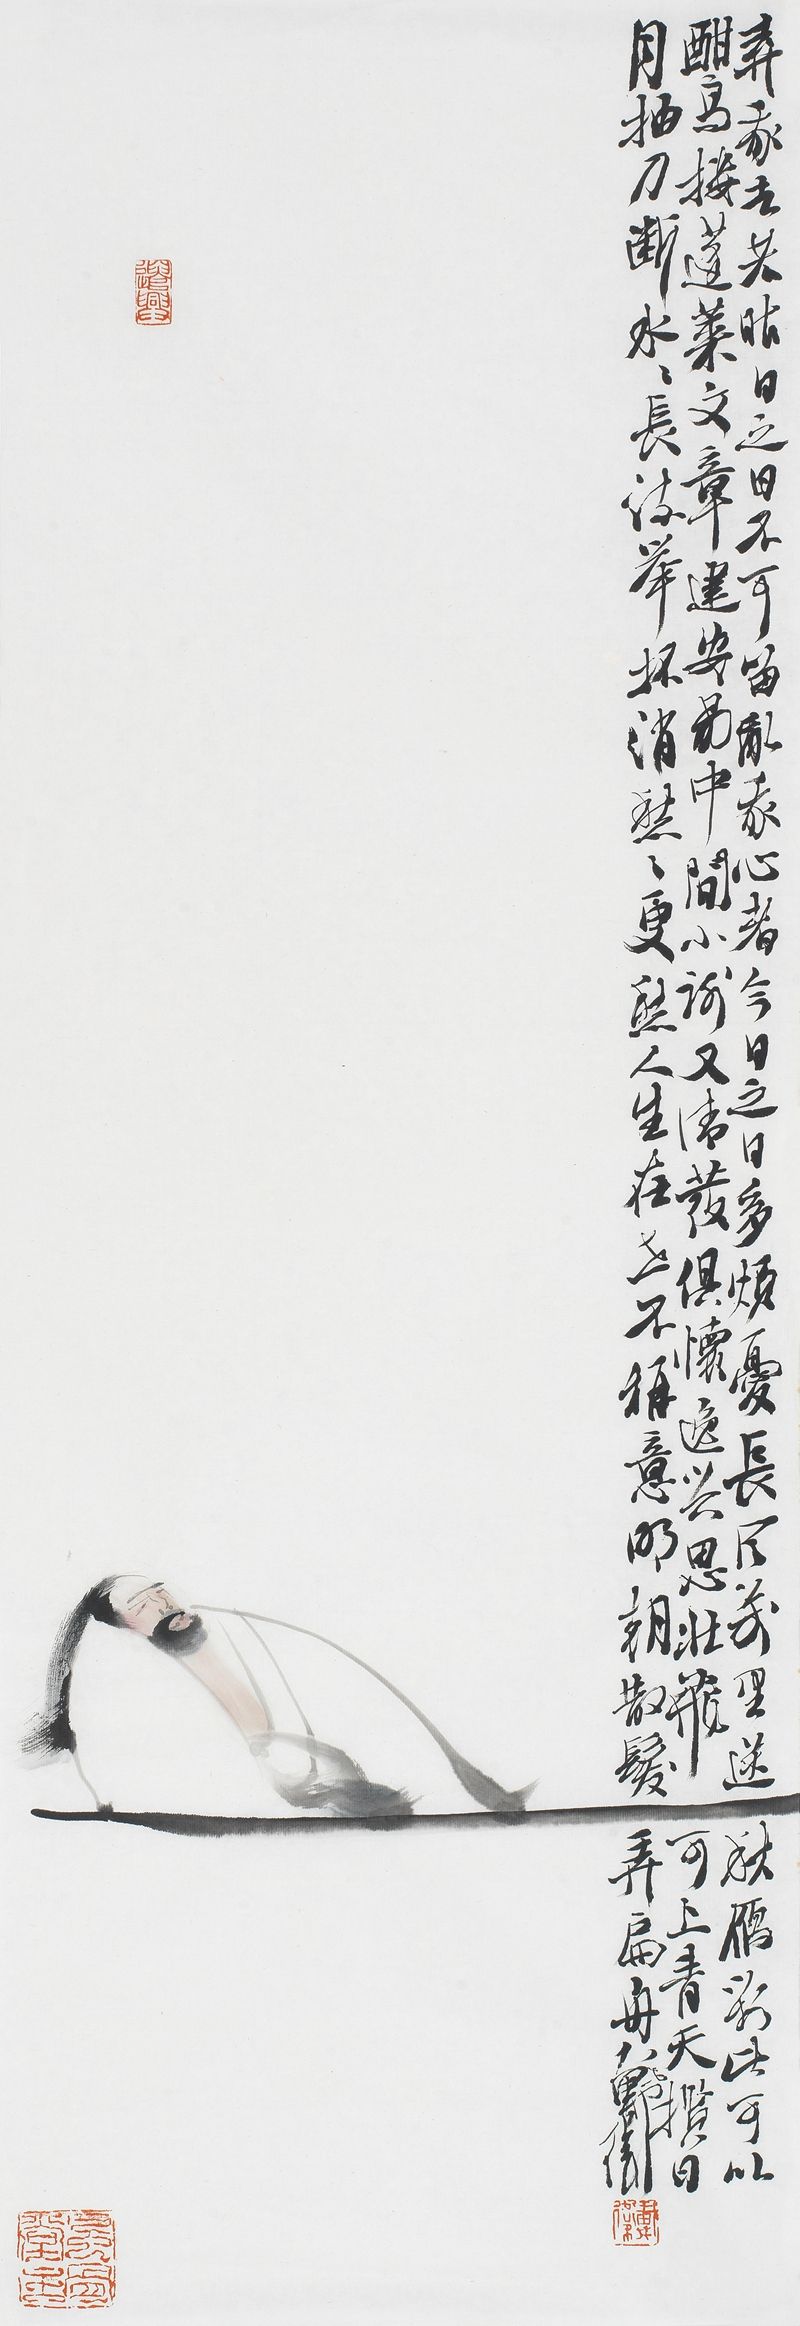 弃我去者昨日之日不可留亂我心者今日之日多煩憂長风萬里送秋雁对此可以
酣高樓蓬萊文章建安骨中間小謝又清發俱懷逸兴思壯飛可上青天攬日
月抽刀断水〻長流举杯消愁〻更愁人生在世不稱意明朝散髮弄扁舟